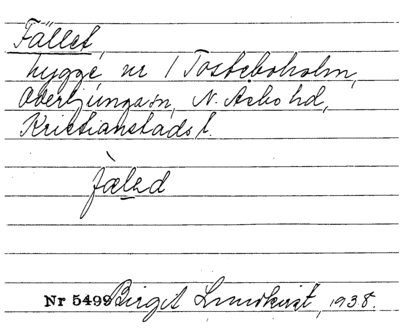 Fället,
hygge nr 1 Tosteboholm,
Överljungasn, N. Åsbo hd,
Kristianstads l.
fàləd
Nr 5499 Birgit Lundkvist, 1938.